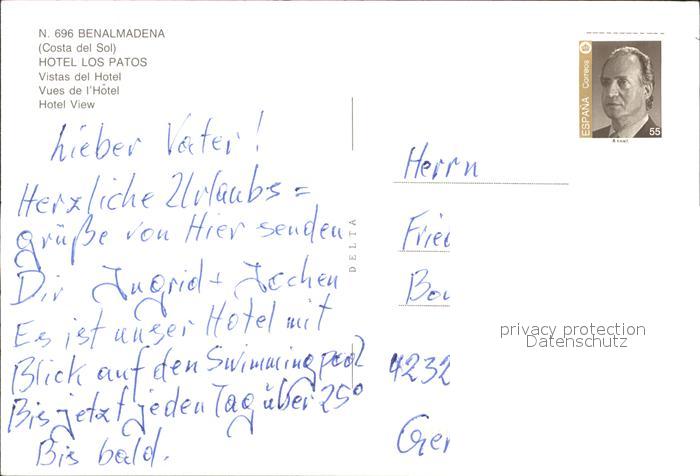 N. 696 BENALMADENA
(Costa del Sol)
HOTEL LOS PATOS
Vistas del Hotel
Vues de l'Hôtel
Hotel View
Lieber Vater!
Herzliche Urlaubs=
grüße von Hier senden
Dir Ingrid + Jochen
Es ist unser Hotel mit
Blick auf den Swimmingpool
Bis jetzt jeden Tag über 25°
Bis bald.
DELTA
ESPAÑA Correos
55
Herrn
Frie
Bo
4232
Ger
privacy protection
Datenschutz